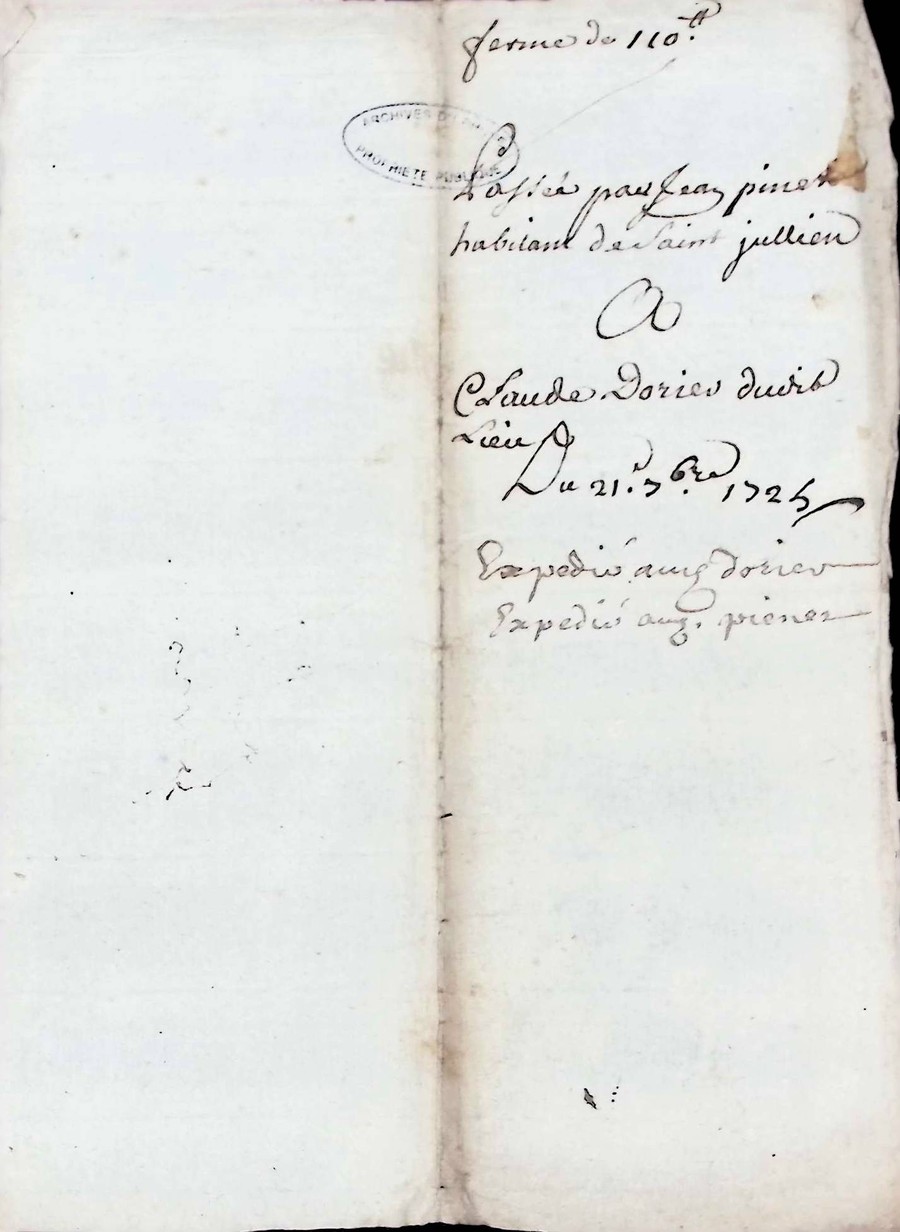 ferme de 110.ᵗᵗ
ARCHIVES DU
PROPRIETE PUBLIQUE
Passée par Jean pinet
habitant de Saint jullien
A
Claude Dorier dudit
Lieu
Du 21.ᵉ 7.ᵇʳᵉ 1725
Expedié aud dorier
Expedié aud.